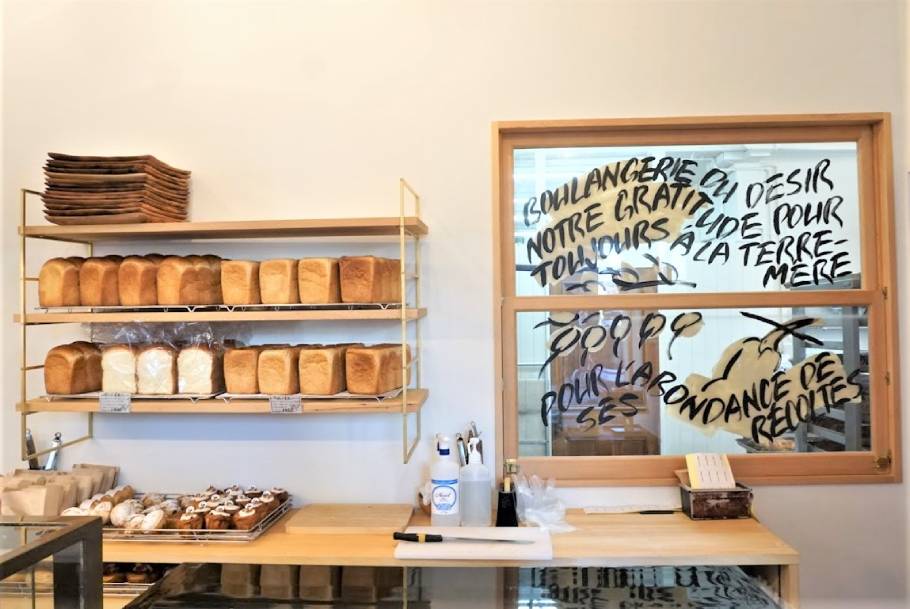 BOULANGERIE DU DESIR
NOTRE GRATITUDE POUR
TOUJOURS A LA TERRE-
MÈRE
POUR L'ABONDANCE DE
SES RÉCOLTES